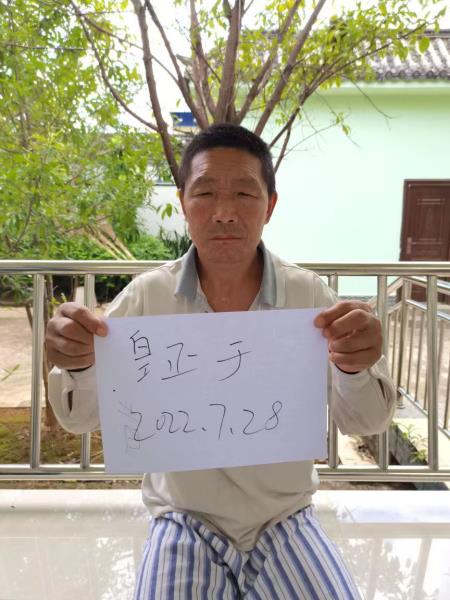 皇正于
2022.7.28